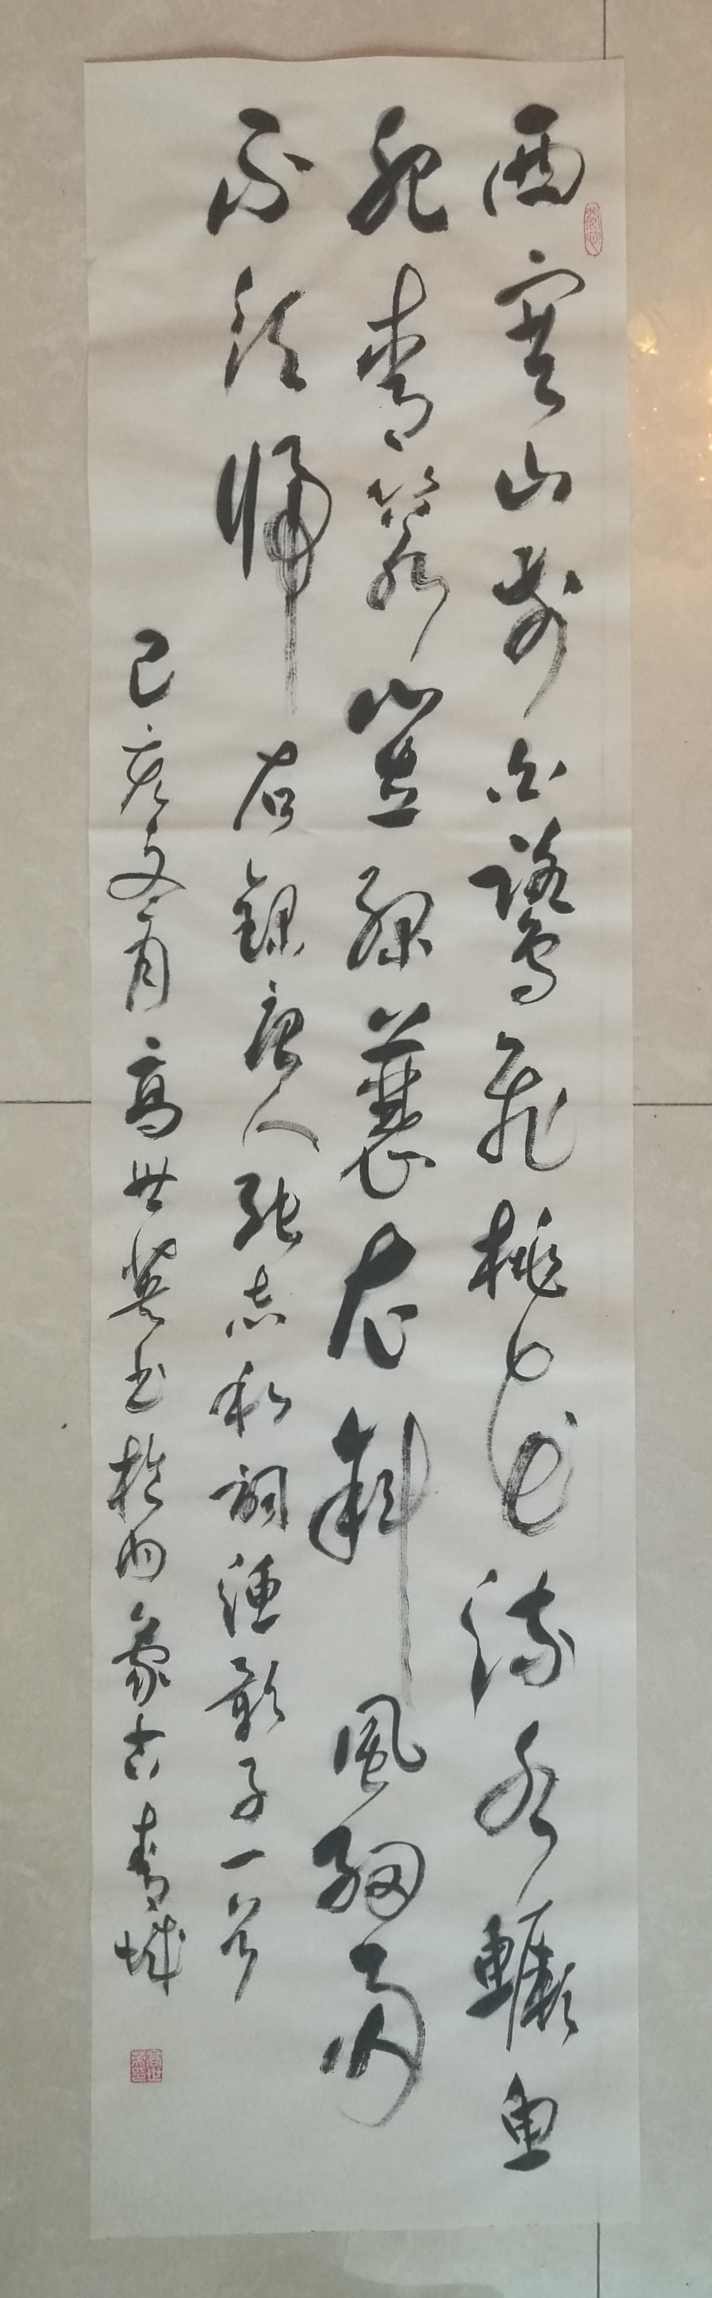 西塞山前白鹭飞桃花流水鳜鱼
肥青箬笠绿蓑衣斜风细雨
不须归
右录唐人张志和词渔歌子一首
己亥文月高世英书于内蒙古青城